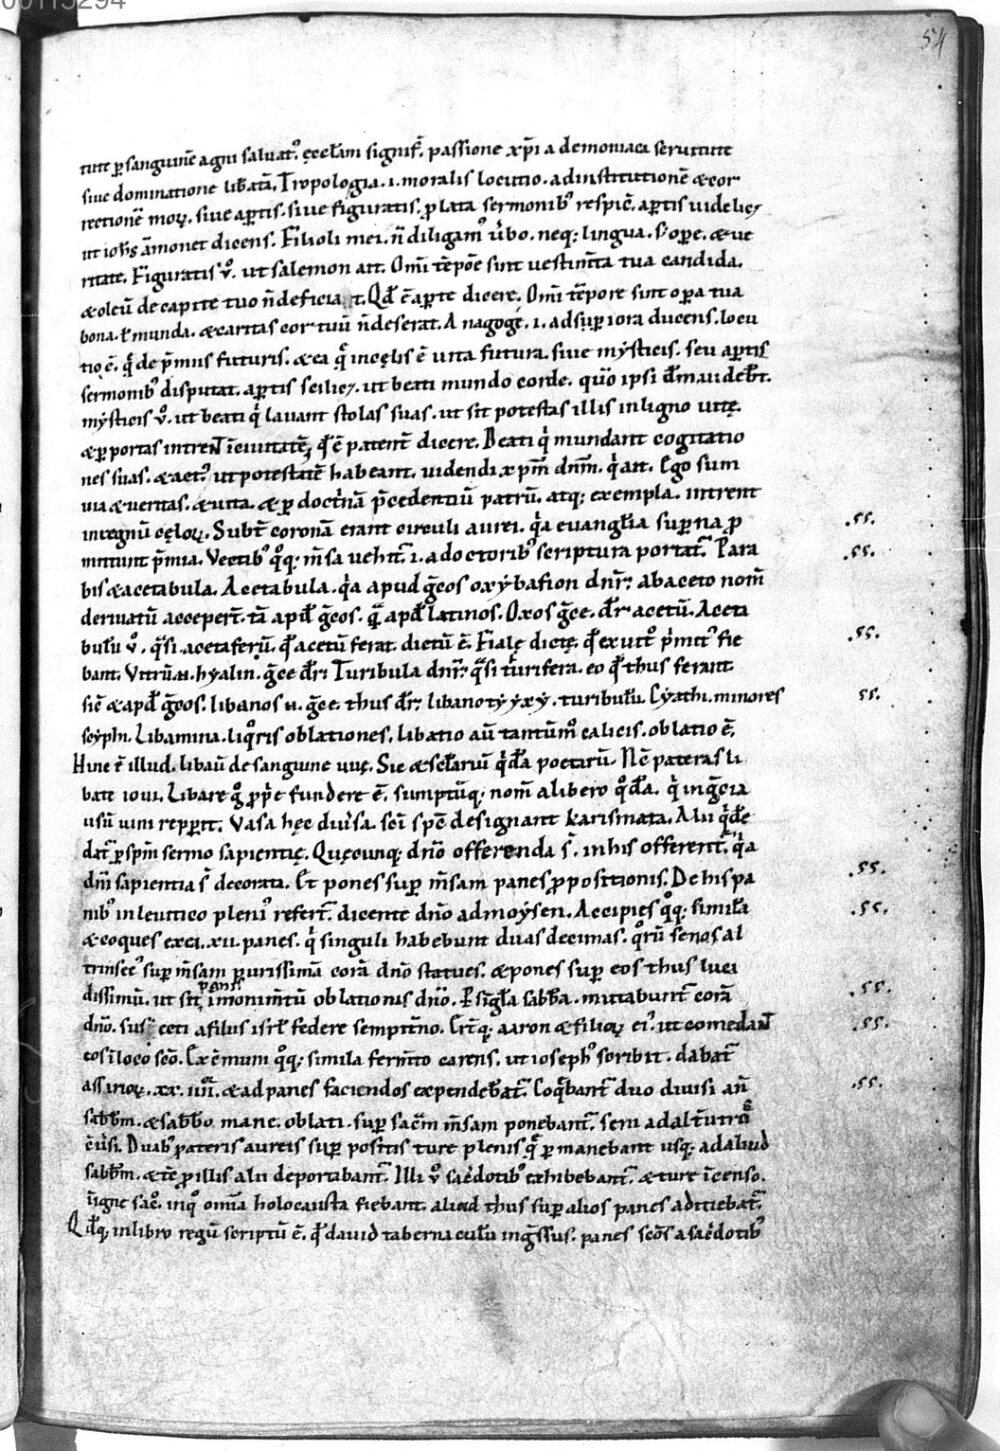 00115294
54
tunt p̱ sanguinē agni saluat᷒. ęccl̄am signif̄. passione xp̄i a demoniaca seruitute
siue dominatione lib̄atā. Tropologia .i. moralis locutio. ad institutionē & cor
rectionē moꝝ. siue ap̱tis. siue figuratis. ꝓlata sermonib᷒ respic̄. ap̱tis uidelicꝫ
ut ioh̄s āmonet dicens. Filioli mei. n̄ diligam᷒ ūbo. neq; lingua. s; oꝑe. & ue
ritate. Figuratis v̊. ut salemon ait. Om̄i tēpōe sint uestim̄ta tua candida.
& oleū de capite tuo n̄ deficiat. Qd̄ ē ap̱te dicere. Om̄i tēpore sint oꝑa tua
bona. ł munda. & caritas cor tuū n̄ deserat. Anagoge .i. ad suꝑiora ducens. locu
tio ē. q̄ de p̄miis futuris. & ea q̄ in cęlis ē uita futura. siue mẏsticis. seu ap̱tis
sermonib᷒ disputat. ap̱tis scilicꝫ. ut beati mundo corde. quō ipsi d̄m uideb̄t.
mẏsticis v̊. ut beati q̇ lauant stolas suas. ut sit potestas illis in ligno uitę.
& ꝑ portas intrent ī ciuitatē. qd̄ ē patent̄ dicere. Beati q̇ mundant cogitatio
nes suas. & act᷒. ut potestatē habeant. uidendi xp̄m dn̄m. q̇ ait. Ego sum
uia & ueritas. & uita. & ꝑ docṫnā p̄cedentiū patrū. atq; exempla. intrent
in regnū cęloꝝ. Subt̄ coronā erant circuli aurei. q̇a euangl̄ia suꝑna ꝓ
mittunt p̄mia. Vectib᷒ q̊q; m̄sa uehit᷑ .i. a doctorib᷒ scriptura portat᷑. Para
bis & acetabula. Acetabula. q̇a apud ḡcos oxẏbafion dn̄r. ab aceto nom̄
deriuatū accep̱er̄t. tā apd̄ ḡcos. q̄ apd̄ latinos. Oxos ḡce. dr̄ acetū. Aceta
bul̄u v̊. q̇si acetaferū. qd̄ acetū ferat dictū ē. Fialę dictę. qd̄ ex uit᷒ ṗmit᷒ fie
bant. Vitrū .n. hyalin. ḡce dr̄. Turibula dn̄r. q̄si turifera. eo qd̄ thus ferant.
sic̄ & apd̄ ḡcos. libanos .n. ḡce. thus dr̄. turibul̄u. Cẏathi. minores
scẏphi. Libamina. liq̊ris oblationes. libatio aū tantūm̊ calicis. oblatio ē.
Hinc ē illud. libaū de sanguine uuę. Sic & sc̄larium q̇dā poetarū. Nc̄ pateras li
bate ioui. Libare g̊ ꝓṗe fundere ē. sumptūq; nom̄ a libero q̊dā. q̇ in gr̄cia
usū uini repp̱it. Vasa hęc diūsa. sc̄i sp̄c designant karismata. Alii q̇de
dat᷑ ꝑ sp̄m sermo sapientię. Quęcunq; dn̄o offerenda s̄. in his offerent᷑. q̇a
dn̄i sapientia s̄ decorata. Et pones suꝑ m̄sam panes ꝓpositionis. De his pa
nib᷒ in leuitico pleni᷒ refert᷑. dicente dn̄o ad moẏsen. Accipies q̊q; simil̄a
& coques ex ea .xii. panes. q̇ singuli habebunt duas decimas. q̊rū senos al
trinsec᷒ suꝑ m̄sam purissimā corā dn̄o statues. & pones suꝑ eos thus luci
dissimū. ut sit panis ī monim̄tū oblationis dn̄o. P singl̄a sabb̄a. mutabunt᷑ corā
dn̄o. suscepti a filiis isrl̄ federe sempit̄no. Er̄tq; aaron & filioꝝ ei᷒. ut comedant
eos ī loco sc̄o. Ex ēmum q̊q; simila ferm̄to carens. ut ioseph᷒ scribit. dabat᷑
assarioꝝ .xx. iiii. & ad panes faciendos expendebāt᷑. Coq̄bant᷑ duo diuisi an̄
sabb̄m. & sabb̄o mane. oblati. suꝑ sac̄m m̄sam ponebant᷑. seni ad alt̄utrū
c̄uīsi. Duab᷒ pateris aureis suꝑ positis ture plenis. q̄ ꝑmanebant usq; ad aliud
sabb̄m. & tc̄ ꝓ illis alii deportabant᷑. Illi v̊ sac̄dotib᷒ exhibebant᷑. & ture īcenso.
ī igne sac̊. in q̊ om̄ia holocausta fiebant. aliud thus suꝑ alios panes adiciebat᷑.
Qd̄q; in libro regū scriptū ē. qd̄ dauid tabernaculū ingr̄ssus. panes sc̄os a sac̄dotib᷒
.ss.
.ss.
.ss.
ss.
.ss.
.ss.
.ss.
.ss.
.ss.